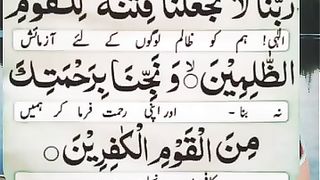 رَبَّنَا لَا تَجْعَلْنَا فِتْنَةً لِّلْقَوْمِ
الٰہی! ہم کو ظالم لوگوں کے لئے آزمائش
الظّٰلِمِيْنَ ۙ وَ نَجِّنَا بِرَحْمَتِكَ
نہ بنا - اور اپنی رحمت فرما کر ہمیں
مِنَ الْقَوْمِ الْكٰفِرِيْنَ